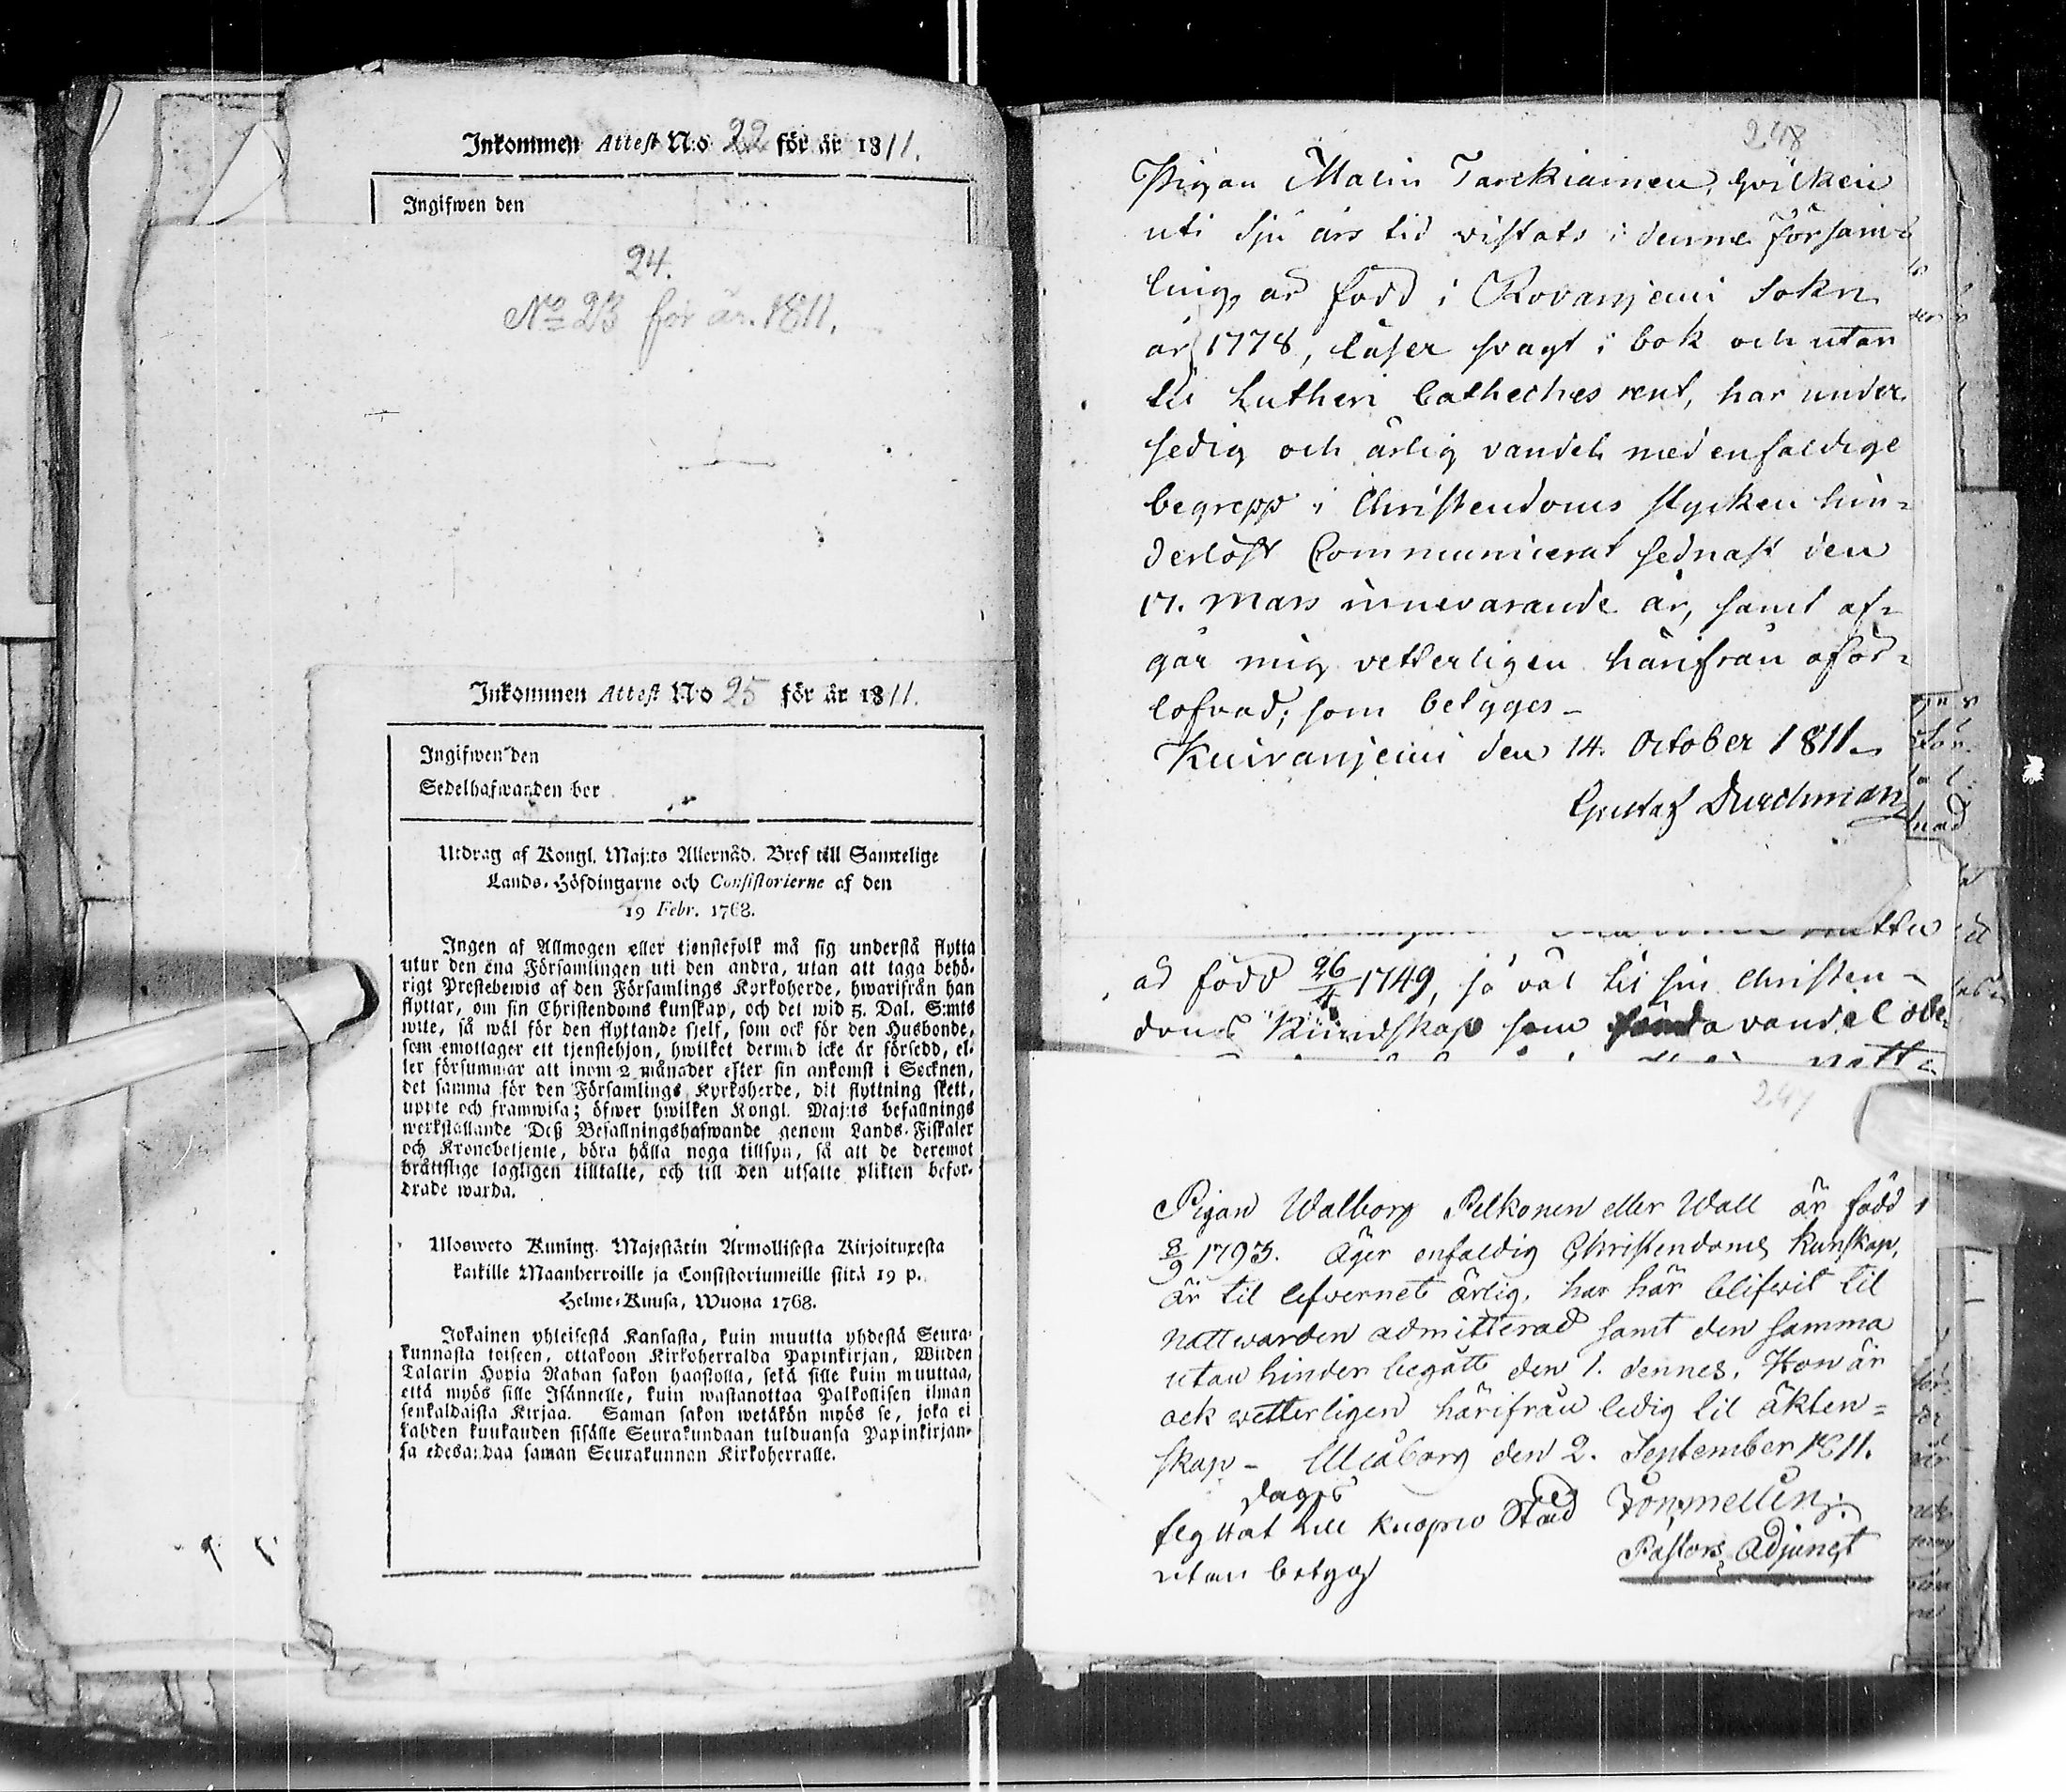 Inkommen Attest N:o 22 för år 1811.
Ingifwen den
24.
No 23 för år. 1811.
Inkommen Attest N:o 25 för år 1811.
Ingifwen den
Sedelhafwanden bor
Utdrag af Kongl. Maj:ts Allernåd. Bref till Samtelige
Lands-Höfdingarne och Consistorierne af den
19 Febr. 1768.
Ingen af Allmogen eller tjenstefolk må sig understå flytta
utur den ena Församlingen uti den andra, utan att taga behö-
rigt Prestebewis af den Församlings Kyrkoherde, hwarifrån han
flyttar, om sin Christendoms kunskap, och det wid 5. Dal. S:mts
wite, så wäl för den flyttande sjelf, som ock för den Husbonde,
som emottager ett tjenstehjon, hwilket dermed icke är försedd, el-
ler försummar att inom 2 månader efter sin ankomst i Socknen,
det samma för den Församlings Kyrkoherde, dit flyttning skett,
uppte och framwisa; öfwer hwilken Kongl. Maj:ts befallnings
werkställande Deß Befallningshafwande genom Lands-Fiskaler
och Kronobetjente, böra hålla noga tillsyn, så att de deremot
bråttslige lagligen tilltalte, och till den utsatte plikten befor-
drade warda.
Ulosweto Kuning. Majestätin Armollisesta Kirjoituxesta
kaikille Maanherroille ja Consistoriumeille siitä 19 p.
Helme-Kuusa, Wuona 1768.
Jokainen yhteisestä Kansasta, kuin muutta yhdestä Seura-
kunnasta toiseen, ottakoon Kirkoherralda Papinkirjan, Wiiden
Talarin Hopia Rahan sakon haastolla, sekä sille kuin muuttaa,
että myös sille Isännelle, kuin wastanottaa Palkollisen ilman
senkaldaista Kirjaa. Saman sakon wetäkön myös se, joka ei
kahden kuukauden sisälle Seurakundaan tulduansa Papinkirjan-
sa edesa:daa saman Seurakunnan Kirkoherralle.
248
Pigan Malin Tarckiainen, hvilken
uti sju års tid vistats i denne Försam-
ling, är född i Rovanjemi Sokn
år 1778, läser svagt i bok och utan
til Lutheri Catheches rent, har under
sedig och ärlig vandel med enfaldige
begrepp i Christendoms stycken hin-
derlöst Communicerat sednast den
17. Mars innevarande år, samt af-
går mig vetterligen härifrån oför-
lofvad; som betyges –
Kuivanjemi den 14. October 1811.
Gustaf Durchman
ad född 26/4 1749, så väl til sin Christen-
doms Kundskap som vandel obe-
247
Pigan Walborg Pelkonen eller Wall är född
8/9 1793. Äger enfaldig Christendoms kunskap,
är til lefvernet ärlig, har här blifwit til
nattwarden admitterad samt den samma
utan hinder begått den 1. dennes. Hon är
ock wetterligen härifrån ledig til äkten-
skap – Uleåborg den 2. September 1811.
dags
flyttat till Kuopio Stad
utan betyg
Pastors Adjunct